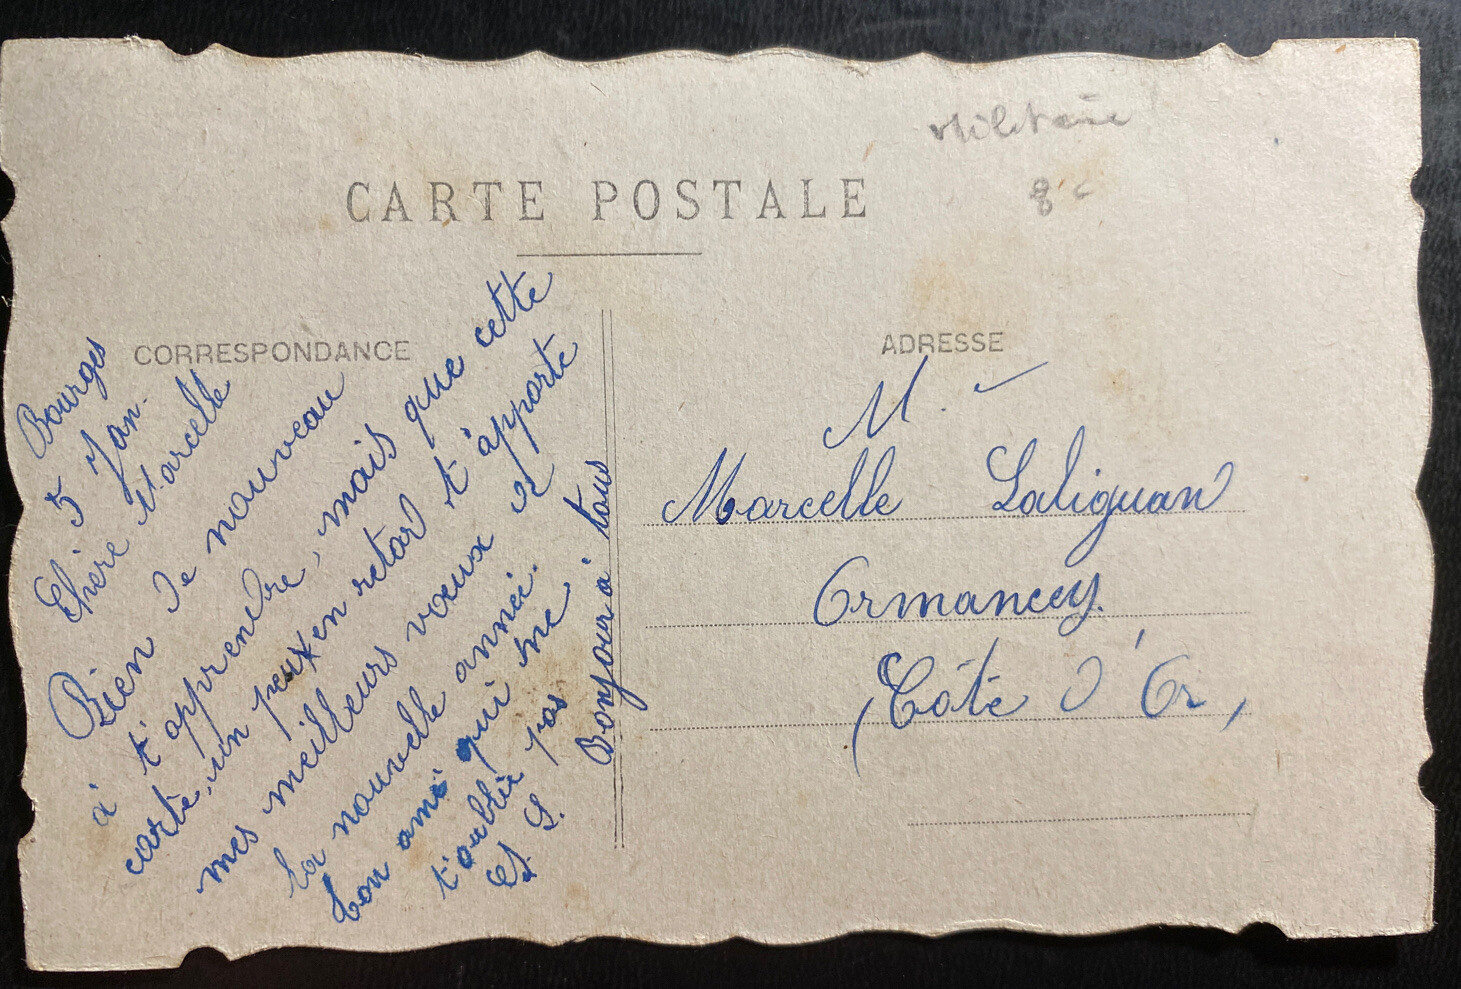 Militaire
8 c
CARTE POSTALE
CORRESPONDANCE
Bourges
5 Jan.
Chère Marcelle
Bien de nouveau
à t'apprendre, mais que cette
carte, un peux en retard t'apporte
mes meilleurs voeux et
la nouvelle année.
Ton ami qui ne
t'oublie pas
L.
Bonjour à tous
ADRESSE
M.
Marcelle Laliguan
Ormancey
(Côte d'Or)